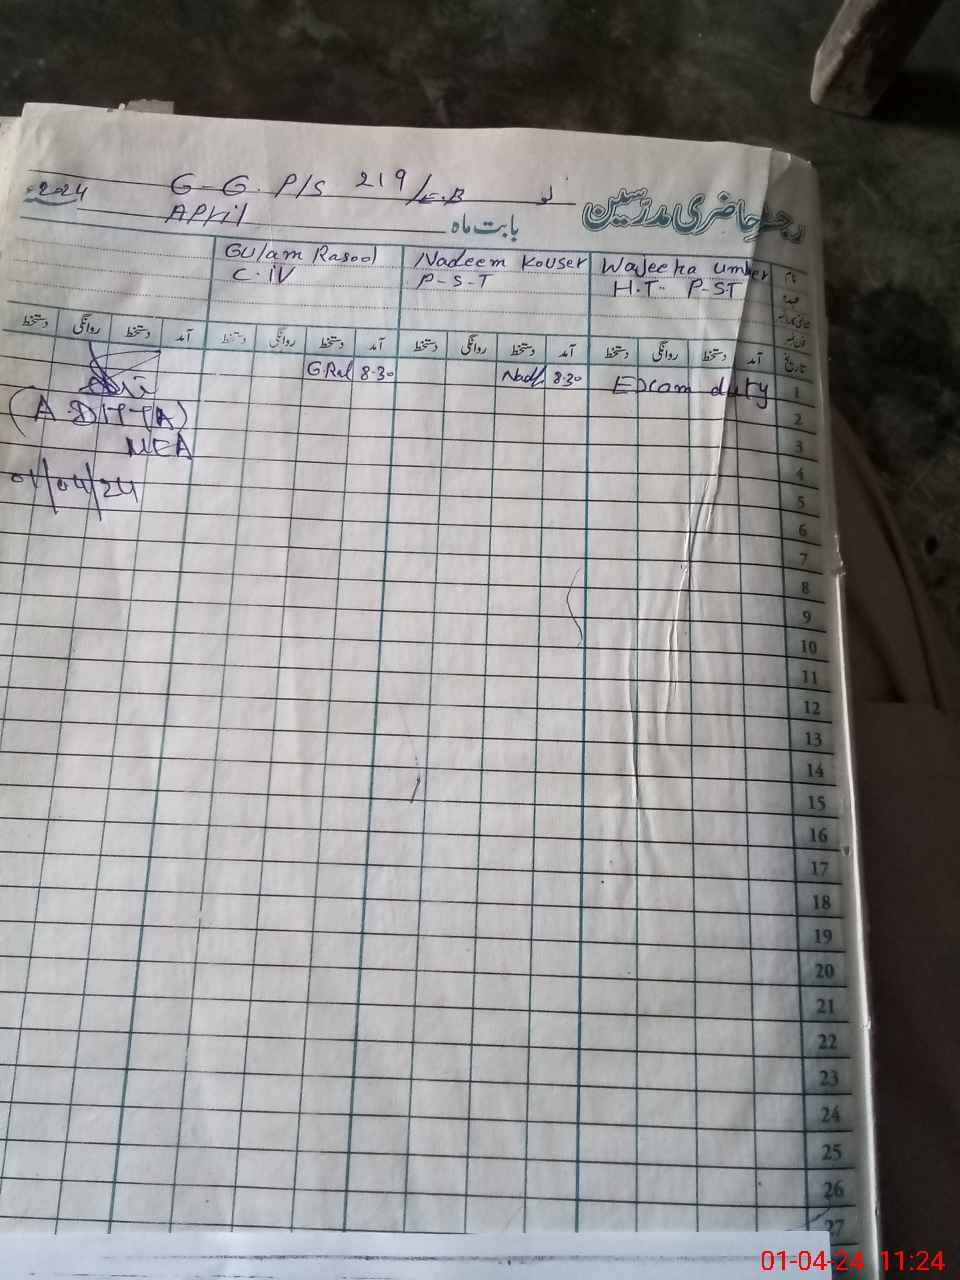 رجسٹر حاضری مدرسین
G-G. P/S 219/E.B
2024
بابت ماہ
April
نام Wajeeha umber Nadeem Kouser Gulam Rasool
عہدہ H.T. P-ST P-S-T C.iV
تاریخ آمد دستخط روانگی دستخط آمد دستخط روانگی دستخط آمد دستخط روانگی دستخط آمد دستخط روانگی دستخط
1 Exam duty 8-30 8-30
2
(A.DITTA)
3
MEA
4
01/04/24
5
6
7
8
9
10
11
12
13
14
15
16
17
18
19
20
21
22
23
24
25
26
27
01-04-24 11:24